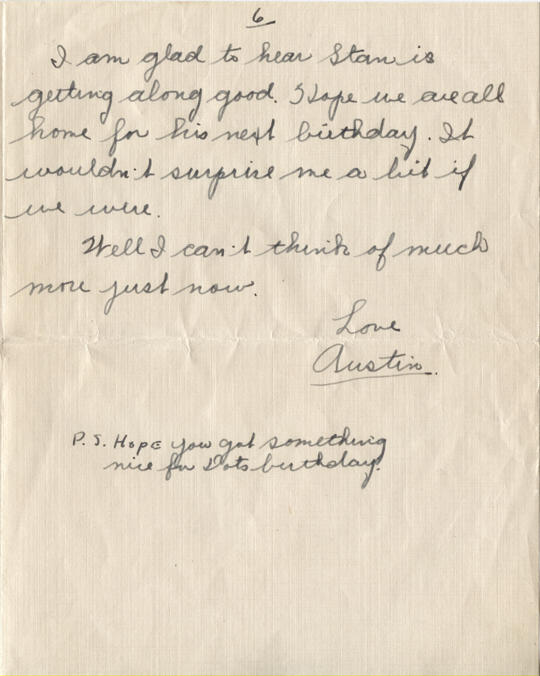 6
I am glad to hear Stan is
getting along good. Hope we are all
home for his next birthday. It
wouldn't surprise me a bit if
we were.
Well I can't think of much
more just now.
Love
Austin.
P.S. Hope you got something
nice for Dots birthday.